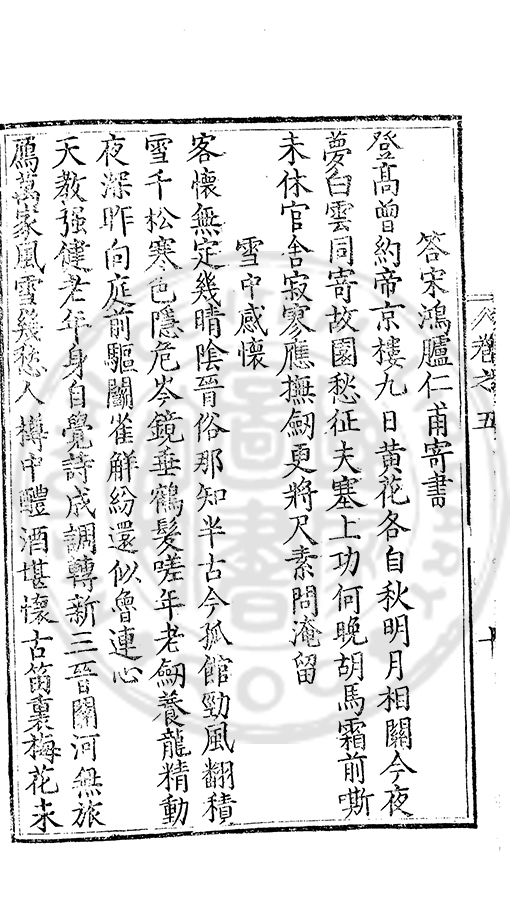 卷之五
答宋鴻臚仁甫寄書
登高曾約帝京樓九日黃花各自秋明月相關今夜
夢白雲同寄故園愁征夫塞上功何晚胡馬霜前嘶
未休官舍寂寥應撫劒更將尺素問淹留
雪中感懷
客懷無定幾晴陰晉俗那知半古今孤館勁風翻積
雪千松寒色隱危岑鏡垂鶴髮嗟年老劒養龍精動
夜深昨向庭前驅鬬雀解紛還似魯連心
天教强健老年身自覺詩成調轉新三晉關河無旅
鴈萬家風雪幾愁人樽中醴酒堪懷古笛裏梅花未